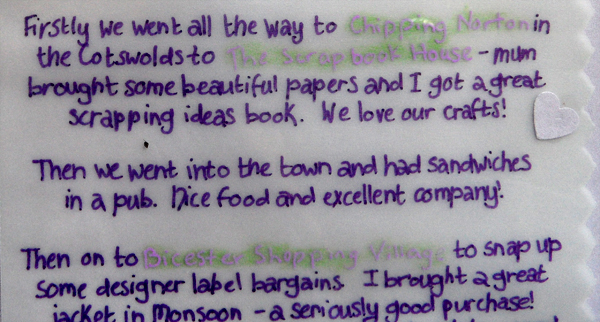 Firstly we went all the way to Chipping Norton in
the Cotswolds to The Scrapbook House - mum
brought some beautiful papers and I got a great
scrapping ideas book. We love our crafts!
Then we went into the town and had sandwiches
in a pub. Nice food and excellent company!
Then on to Bicester Shopping Village to snap up
some designer label bargains. I brought a great
jacket in Monsoon - a seriously good purchase!